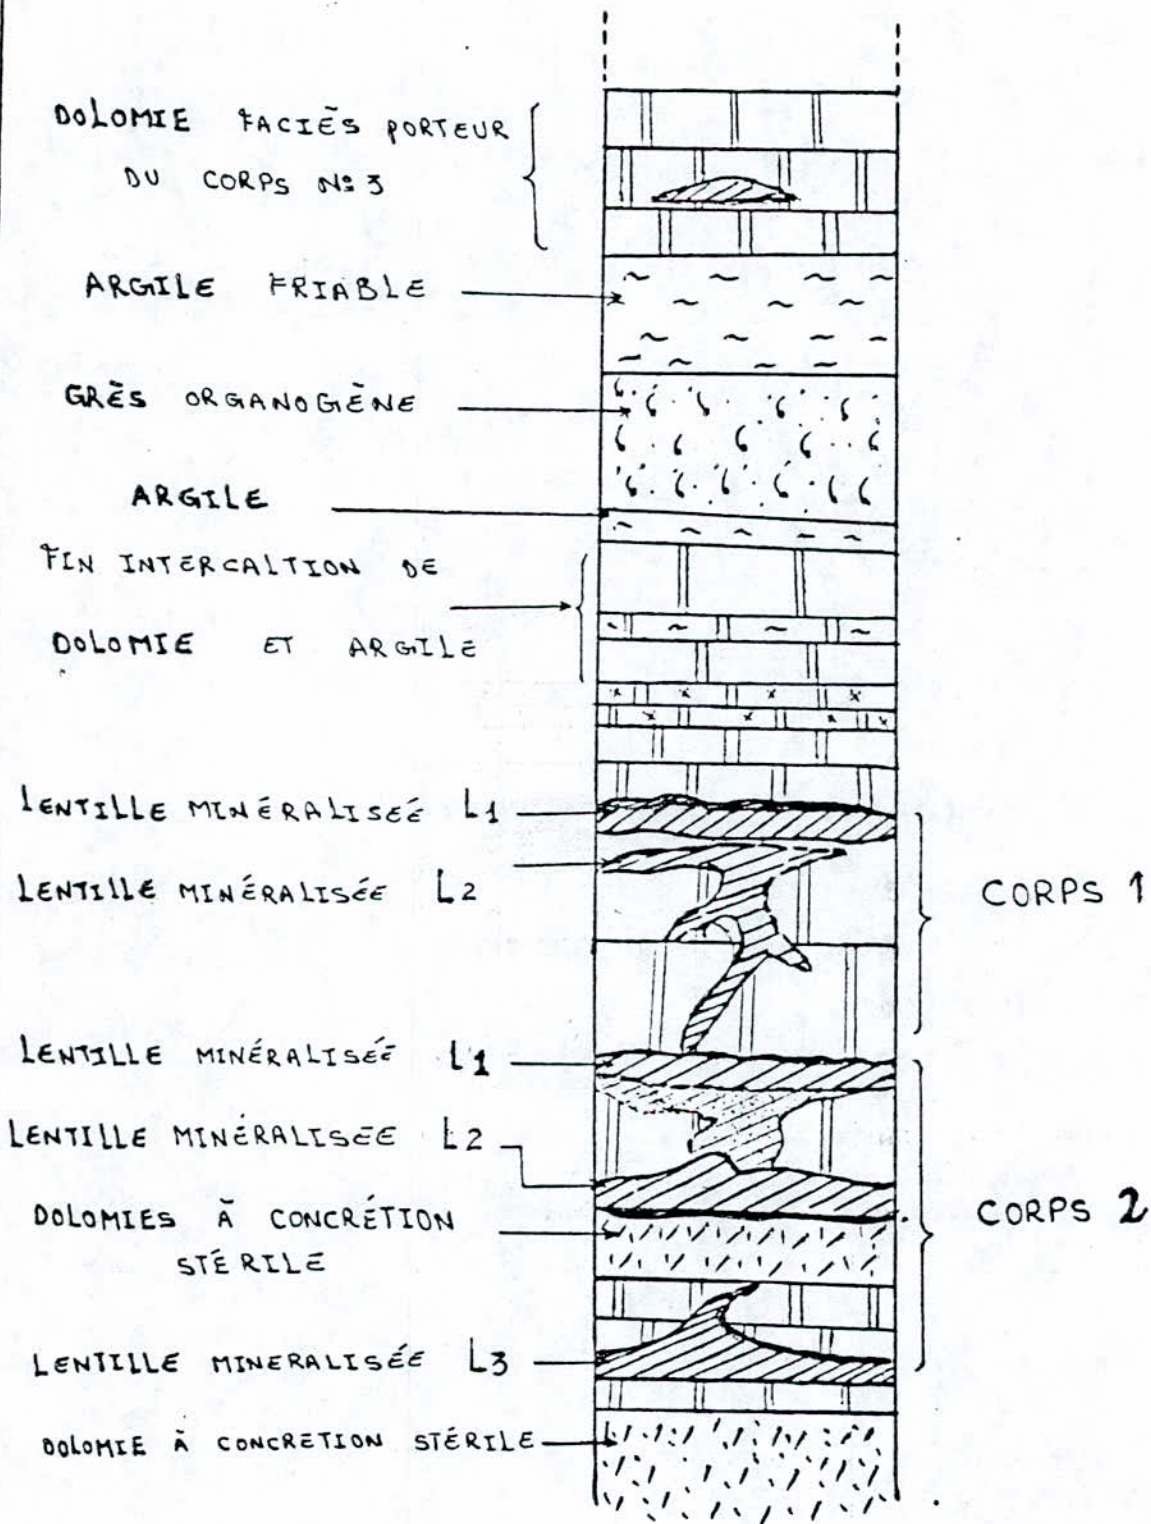 DOLOMIE FACIÈS PORTEUR
DU CORPS N° 3
ARGILE FRIABLE
GRÈS ORGANOGÈNE
ARGILE
FIN INTERCALTION DE
DOLOMIE ET ARGILE
LENTILLE MINÉRALISEÉ L1
LENTILLE MINÉRALISÉE L2
CORPS 1
LENTILLE MINÉRALISÉE L1
LENTILLE MINÉRALISÉE L2
DOLOMIES À CONCRÉTION
STÉRILE
CORPS 2
LENTILLE MINERALISÉE L3
DOLOMIE À CONCRETION STÉRILE